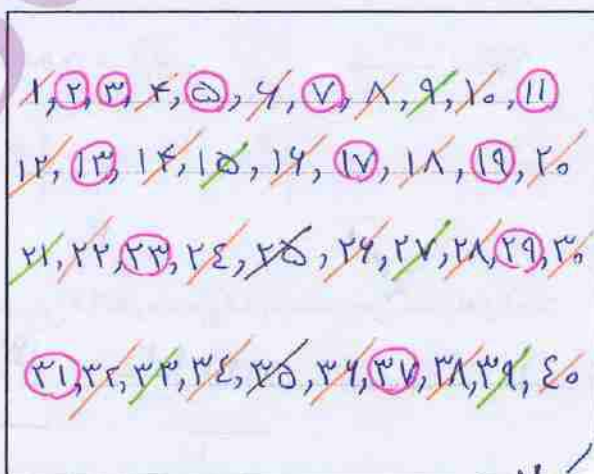 ۱, ۲, ۳, ۴, ۵, ۶, ۷, ۸, ۹, ۱۰, ۱۱
۱۲, ۱۳, ۱۴, ۱۵, ۱۶, ۱۷, ۱۸, ۱۹, ۲۰
۲۱, ۲۲, ۲۳, ۲۴, ۲۵, ۲۶, ۲۷, ۲۸, ۲۹, ۳۰
۳۱, ۳۲, ۳۳, ۳۴, ۳۵, ۳۶, ۳۷, ۳۸, ۳۹, ۴۰